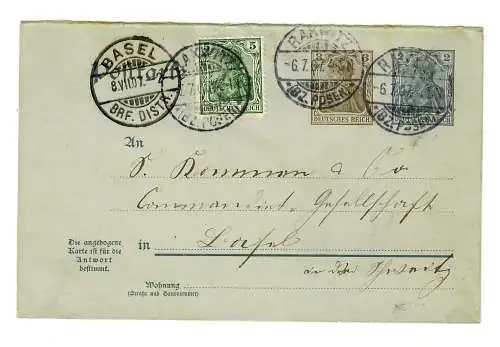 BASEL
8.VII.07.
BRF. DISTR.
RAKWITZ
5
3 3
RAKWITZ
-6.7.07.
(BZ. POSEN)
DEUTSCHES REICH
2 2
(BZ. POSEN)
An
S. & Co
Commandit-Gesellschaft
in Basel
in der Schweiz
Die angebogene
Karte ist für die
Antwort
bestimmt.
Wohnung
(Straße und Hausnummer)